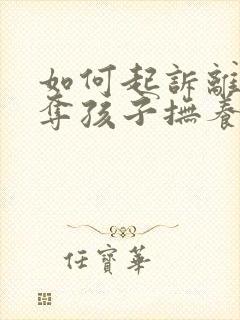 如何起訴離
奪孩子撫養
任寶華